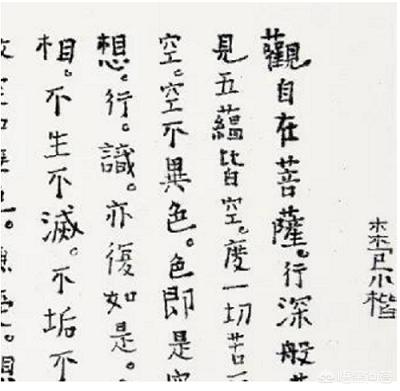 小楷
觀自在菩薩。行深般
見五蘊皆空。度一切苦
空。空不異色。色即是空
想。行。識。亦復如是。
相。不生不滅。不垢不